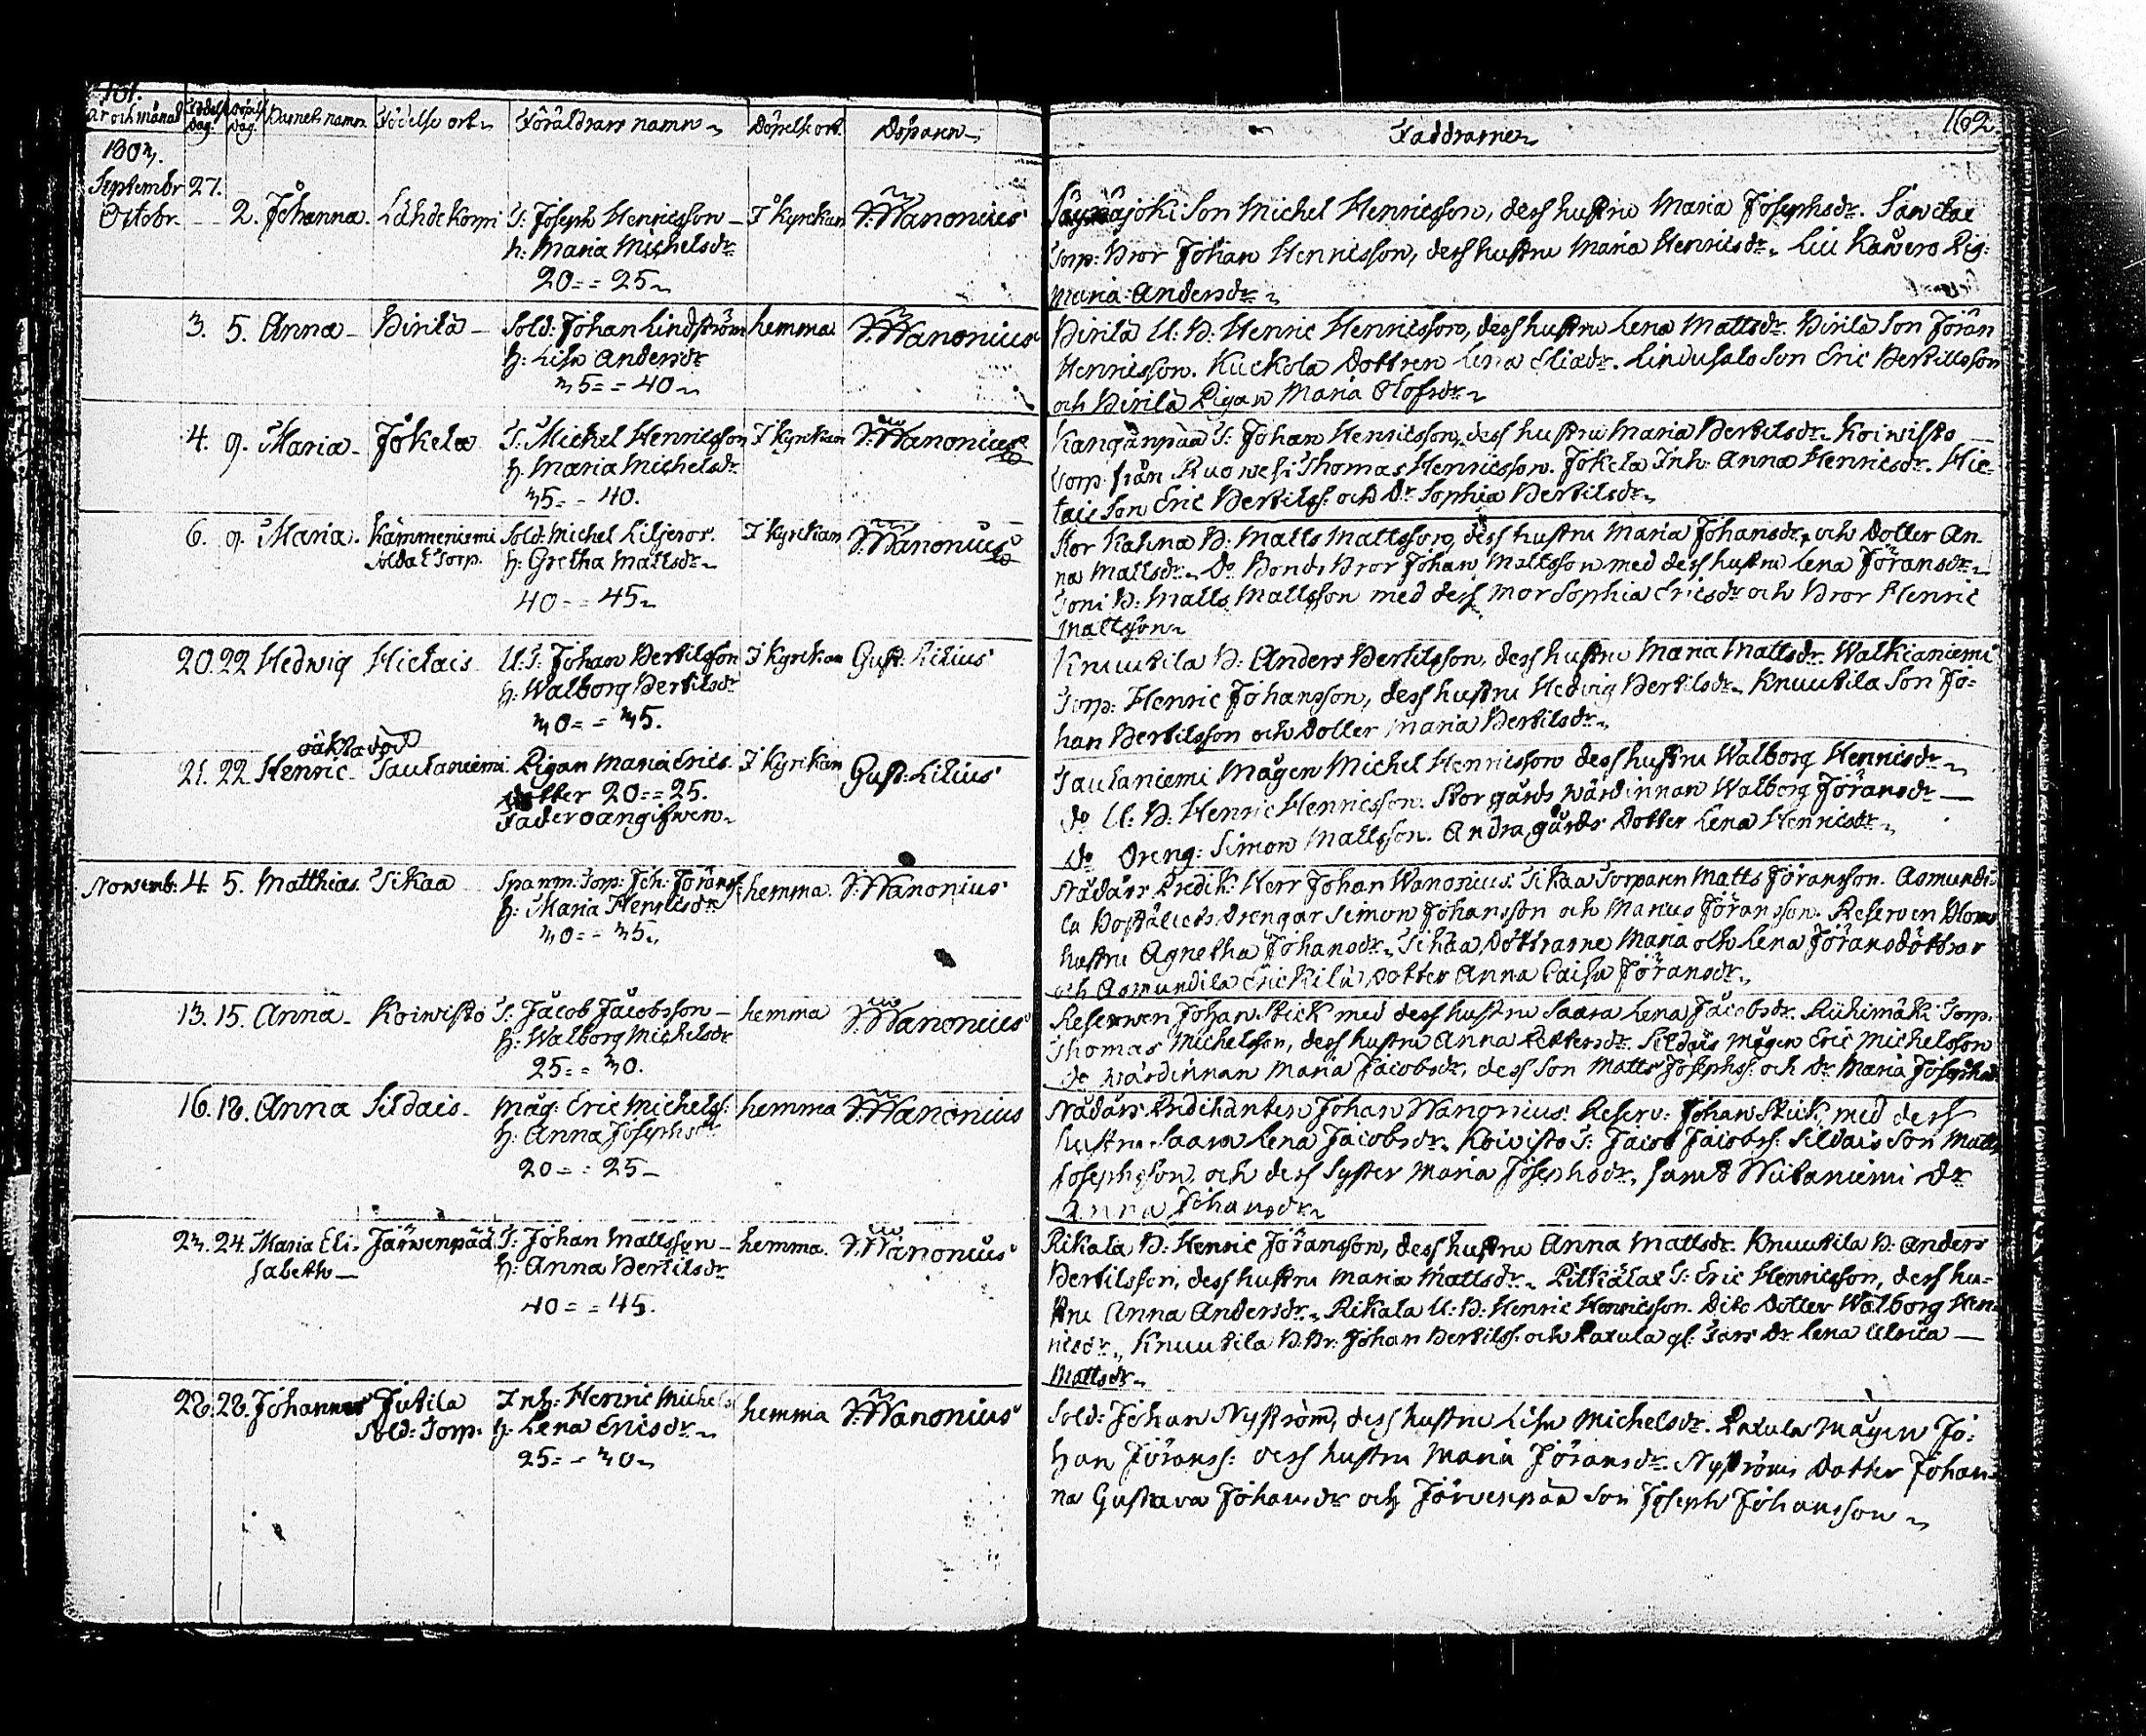 161.
år och månad Födelse dag. Döpelse dag. Barnets namn. Födelse ort Föräldrars namn Döpelse ort. Döparen
1803.
Septembr 27.
Octobr. 2. Johanna. Lähdekorpi T: Joseph Henricsson I Kyrckan J. Wanonius
h: Maria Michelsdr
20 = = 25
3. 5. Anna Pirilä Sold: Johan Lindström hemma J. Wanonius
h: Lisa Andersdr
35 = = 40
4. 9. Maria Jokela T: Michel Henricsson I Kyrckan J. Wanonius
h. Maria Michelsdr
35 = - 40.
6. 9. Maria. Kämmeniemi Sold: Michel Liljeros. I Kyrckan J. Wanonius
soldat Torp. h: Gretha Mattsdr
40 = = 45
20. 22 Hedwig Hietais U: T: Johan Bertilsson I Kyrckan Gust: Lilius
h: Walborg Bertilsdr
30 = = 35.
oäkta
21. 22. Henric Tautaniemi Pigan Maria Erics I Kyrckan Gust: Lilius
dotter 20 = = 25.
Fader oangifwen
Novemb: 4. 5. Matthias. Sikaa Spanm. Torp: Joh: Jöranss: hemma. J. Wanonius
h: Maria Henricsdr
30 = = 35
13. 15. Anna Koiwisto T: Jacob Jacobsson hemma J. Wanonius
h: Walborg Michelsdr
25 = = 30.
16. 18. Anna Sildais Måg: Eric Michelss: hemma J. Wanonius
h: Anna Josephsdr
20 = : 25
23. 24. Maria Eli- Järwenpää T: Johan Mattsson hemma. J. Wanonius
sabeth h: Anna Bertilsdr
40 = = 45.
28. 28. Johannes Jutila Inh: Henric Michels hemma J. Wanonius
Sold: Torp. h: Lena Ericsdr
25 = = 30
Faddrarne 162.
Son Michel Henricsson, dess hustru Maria Josephsdr.
Torp: Bror Johan Henricsson, dess hustru Maria Henricsdr Pig:
Maria Andersdr
Pirilä U: B: Henric Henricsson, dess hustru Lena Mattsdr. Pirilä Son Jöran
Henricsson. Kuckola Dottren Lena Eliædr. Lindusalo Son Eric Bertillsson
och Pirilä Pigan Maria Olofsdr
Kangänpää T: Johan Henricsson, dess hustru Maria Bertilsdr. Koiwisto
Torp. från Ruowesi Thomas Henricsson. Jokela Inh: Anna Henricsdr. Hie-
tais Son Eric Bertilss: och Dr Sophia Bertilsdr
Stor Kahna B: Matts Mattsson, dess hustru Maria Johansdr, och Dotter An-
na Mattsdr. Do Bonds Bror Johan Mattsson med dess hustru Lena Jöransdr
Toni B: Matts Mattsson med dess mor Sophia Ericsdr och Bror Henric
Mattsson
Knuutila B: Anders Bertilsson, dess hustru Maria Mattsdr. Walkianiemi
Torp: Henric Johansson, dess hustru Hedvig Bertilsdr. Knuutila Son Jo-
han Bertilsson och Dotter Maria Bertilsdr
Tautaniemi Mågen Michel Henricsson dess hustru Walborg Henricsdr
do U: B: Henric Henricsson. Storgårds wärdinnan Walborg Jöransdr
do Dreng: Simon Mattsson. Andra gårds Dotter Lena Henricsdr
Nådårs Predik: Herr Johan Wanonius. Sikaa Torparen Matts Jöransson. Asmundi-
la Boställets drengar Simon Johansson och Manus Jöransson. Reserven Blom
hustru Agnetha Johansdr. Sikaa Döttrarne Maria och Lena Jöransdöttrar
och Asmundila Erickilä Dotter Anna Caisa Jöransdr
Reserwen Johan Stick med dess hustru Saara Lena Jacobsdr. Riihimäki Torp.
Thomas Michelsson, dess hustru Anna Pettersdr. Sildais mågen Eric Michelsson
do wärdinnan Maria Jacobsdr, dess Son Matts Josephss: och Dr Maria Josephsdr
Nådårs Predikanten Johan Wanonius. Reserv: Johan Stick med dess
hustru Saara Lena Jacobsdr. Koivisto T: Jacob Jacobss: Sildais Son Matts
Josephsson och dess Syster Maria Josephsdr, samt Wiitaniemi Dr
Anna Johansdr
Rikala B: Henric Jöransson, dess hustru Anna Mattsdr. Knuutila B: Anders
Bertilsson, dess hustru Maria Mattsdr. T: Eric Henricsson, dess hu-
stru Anna Andersdr. Rikala U: B: Henric Henricsson. Dito Dotter Walborg Hen-
ricsdr. Knuutila B: Br: Johan Bertilss: och Paxula gl: Fars Dr Lena Ulrica
Mattsdr
Sold: Johan Nyström, dess hustru Lisa Michelsdr. Paxula Mågen Jo-
han Jöranss: dess hustru Maria Jöransdr. Nyströms Dotter Johan-
na Gustava Johansdr och Järvenpää Son Joseph Johansson